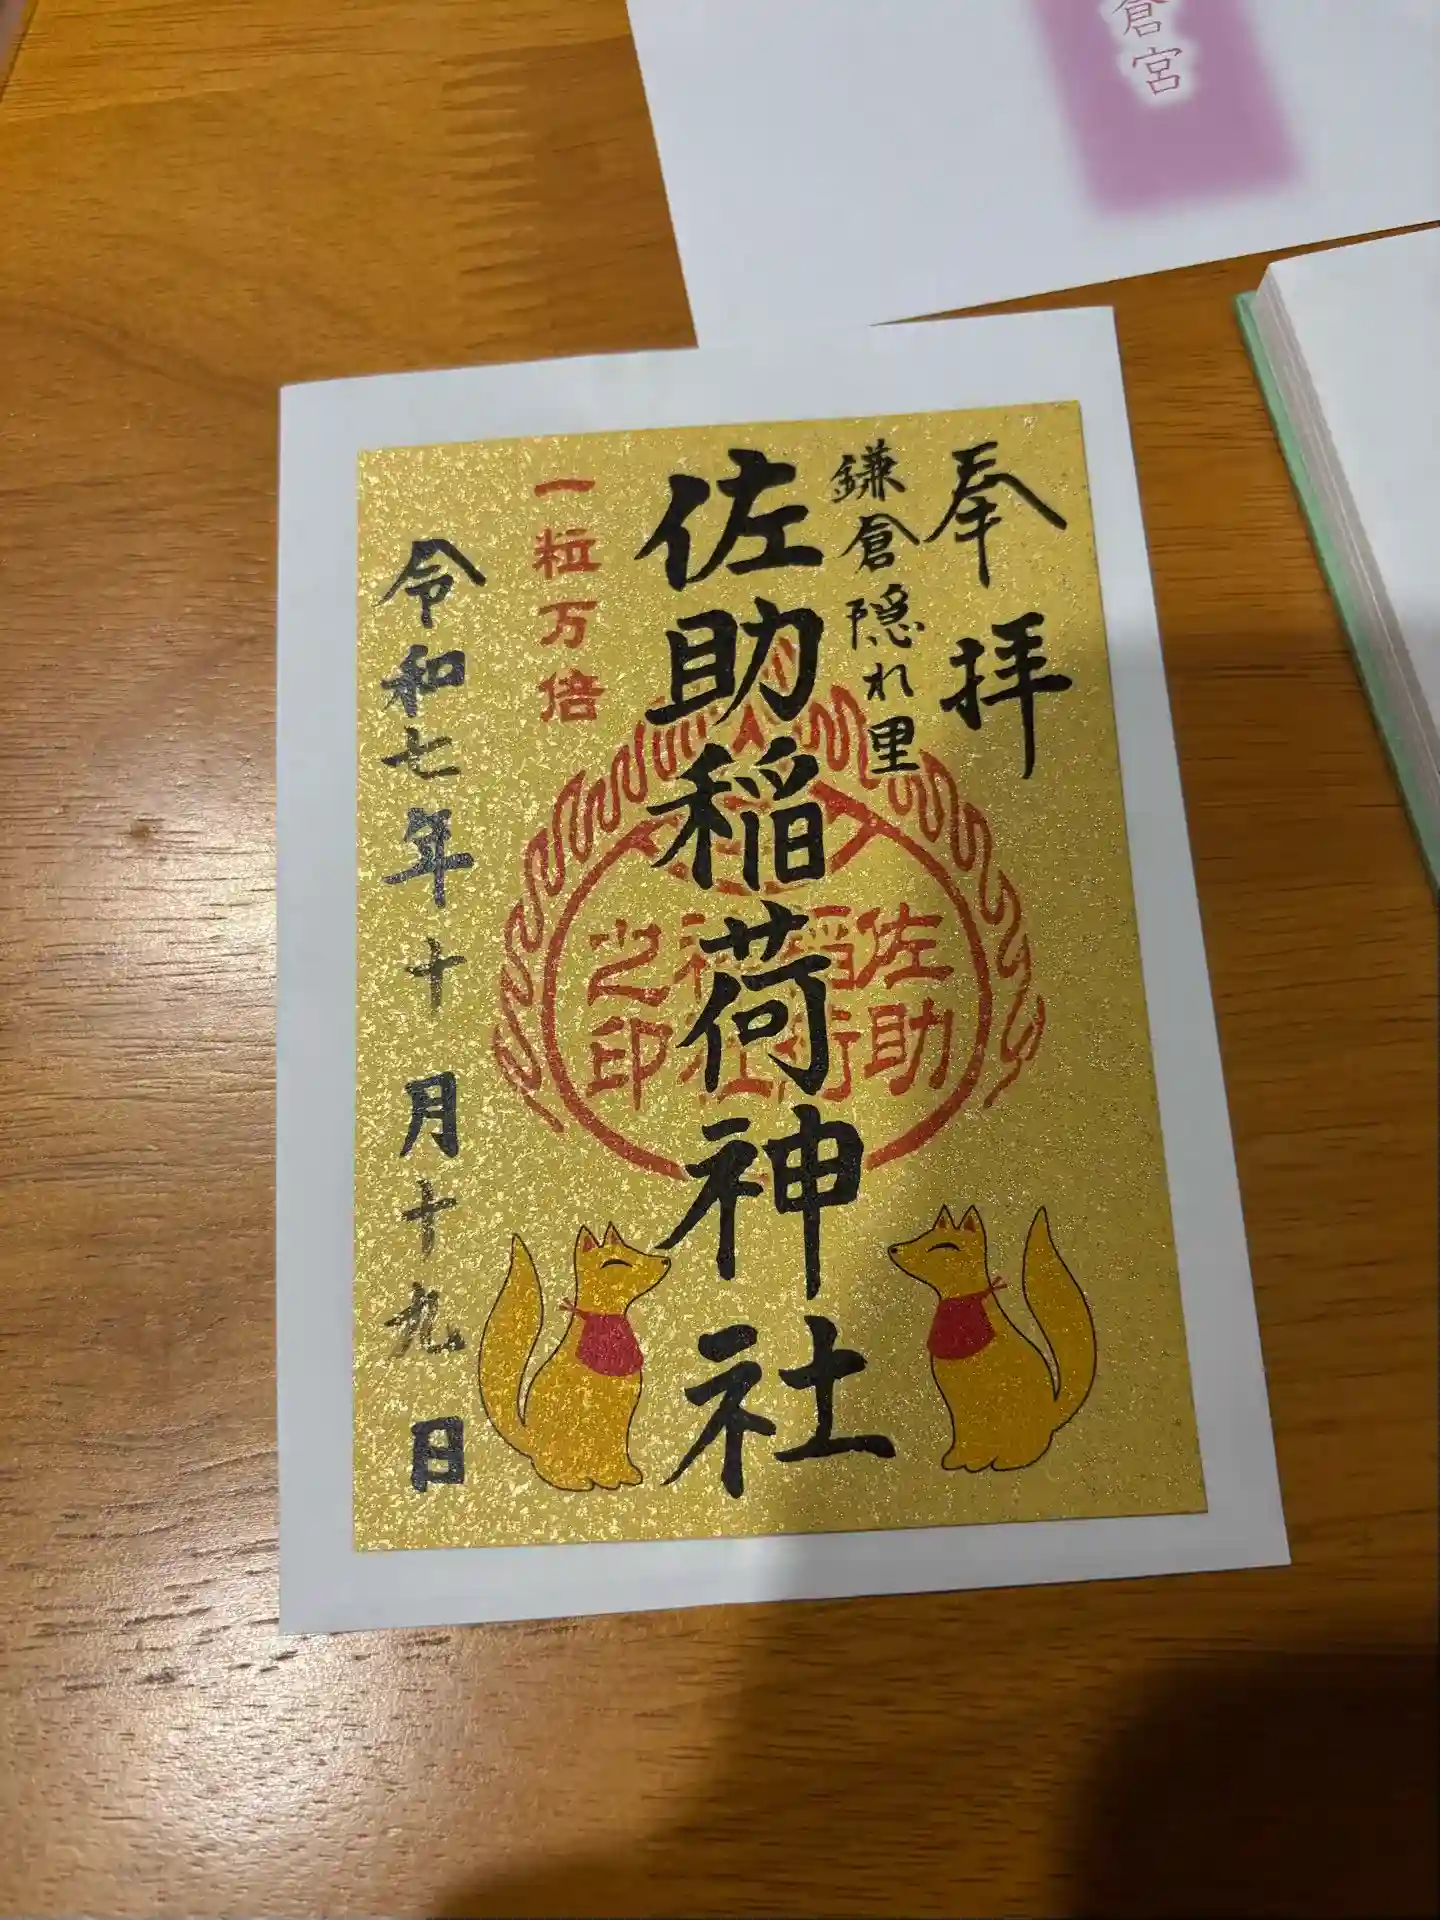 倉宮
奉拝
鎌倉隠れ里
佐助稲荷神社
一粒万倍
佐助
稲荷
神社
之印
令和七年十月十九日